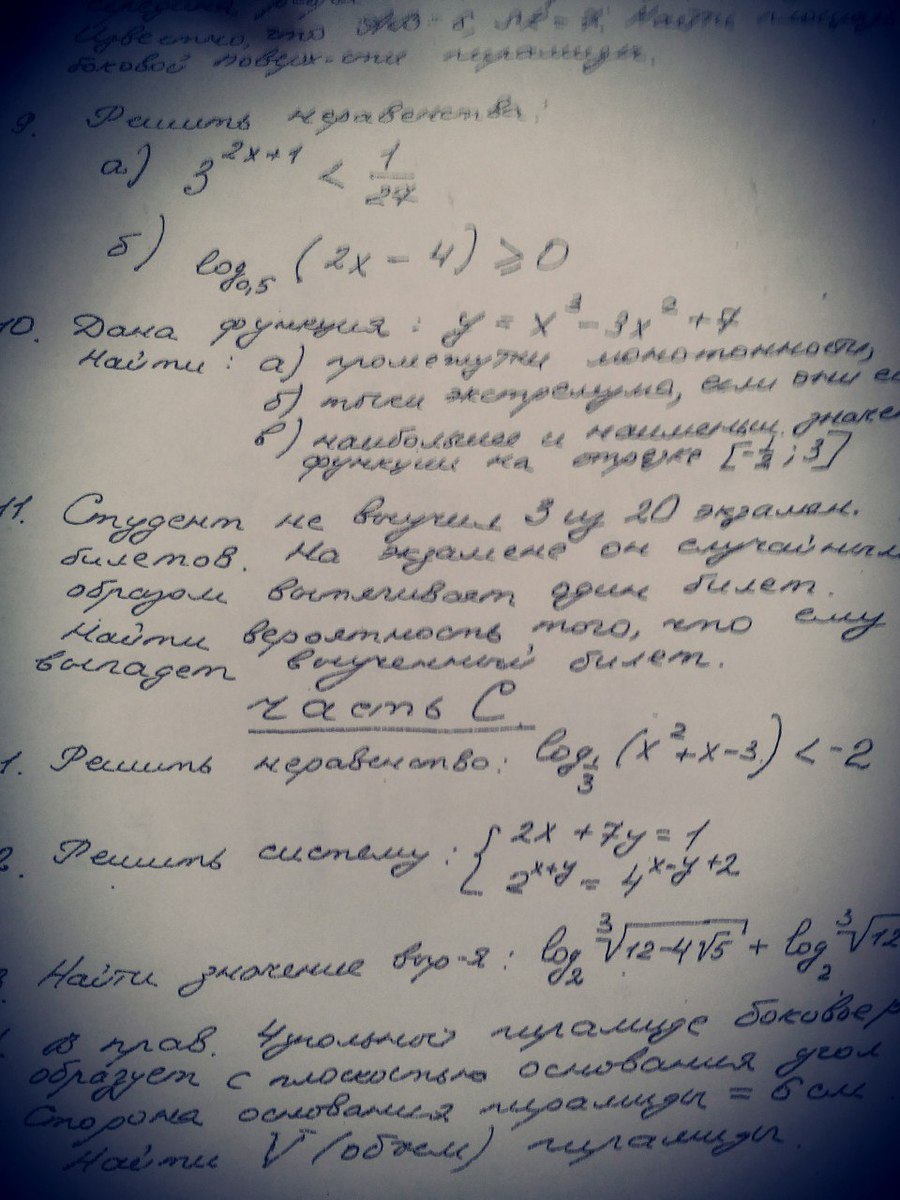 Известно, что
боковой поверх-сти пирамиды.
9. Решить неравенства:
а) 3^{2x+1} < \frac{1}{27}
б) log_{0,5} (2x - 4) ⩾ 0
10. Дана функция: y = x^3 - 3x^2 + 7
Найти: а) промежутки монотонности,
б) точки экстремума, если они
в) наибольшее и наименьш. значе
функции на отрезке [-\frac{1}{2}; 3]
11. Студент не выучил 3 из 20 экзамен.
билетов. На экзамене он случайным
образом вытягивает один билет.
Найти вероятность того, что ему
выпадет выученный билет.
часть С.
1. Решить неравенство: log_{\frac{1}{3}} (x^2 + x - 3) < -2
2. Решить систему: { 2x + 7y = 1
2^{x+y} = 4^{x-y+2}
Найти значение выр-я: log_2 \sqrt[3]{12-4\sqrt{5}} + log_2 \sqrt[3]{12
В прав. 4угольный пирамиде боковое р
образует с плоскостью основания угол
Сторона основания пирамиды = 6 см
Найти V (объем) пирамиды.